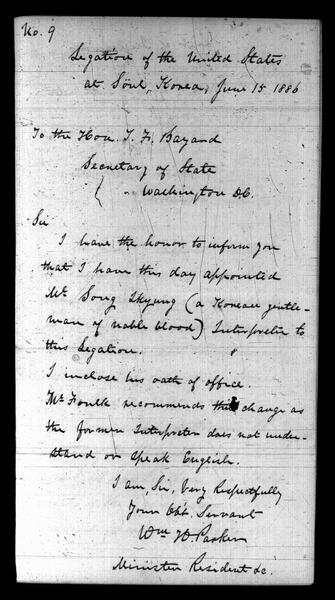 No. 9
Legation of the United States
at Söul, Korea, June 15 1886
To the Hon. T. F. Bayard
Secretary of State
Washington D.C.
Sir
I have the honor to inform you
that I have this day appointed
Mr Song (a Korean gentle-
man of noble blood) Interpreter to
this Legation.
I inclose his oath of office.
Mr Foulk recommends this change as
the former Interpreter does not under-
stand or speak English.
I am, Sir, Very Respectfully
Your Obt. Servant
Wm H. Parker
Minister Resident &c.